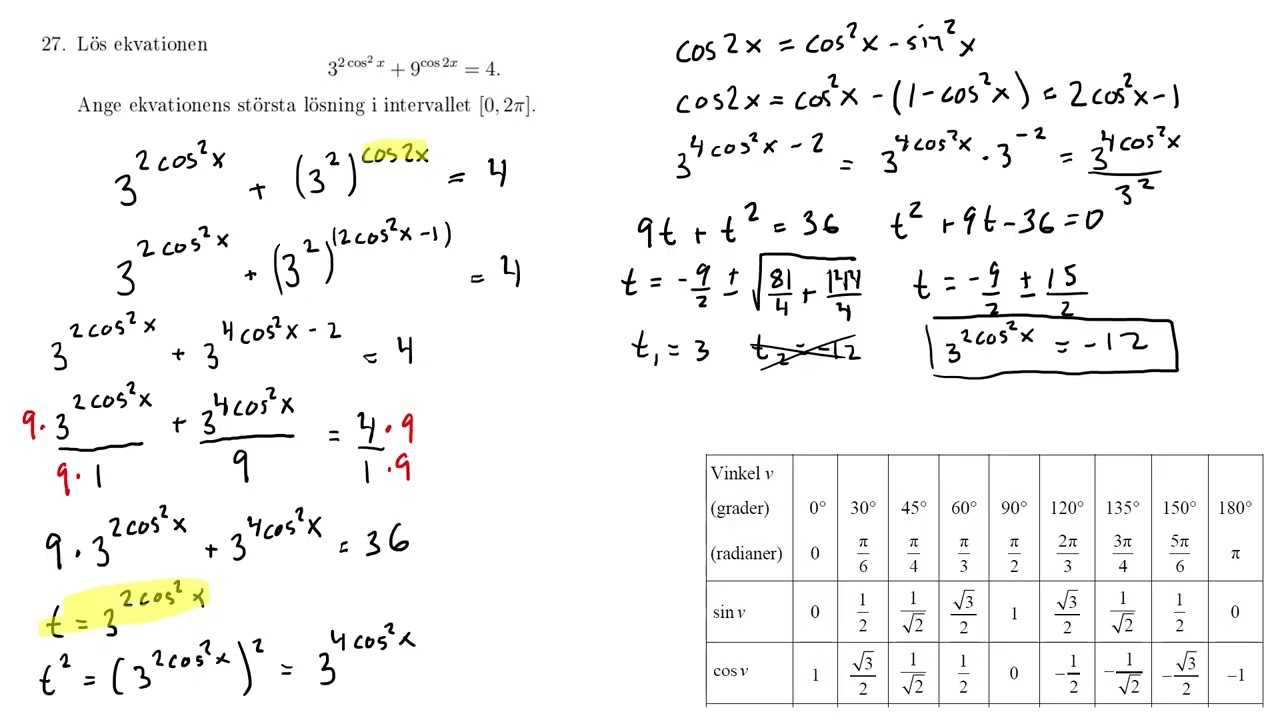 27. Lös ekvationen
3^{2 cos² x} + 9^{cos 2x} = 4.
Ange ekvationens största lösning i intervallet [0, 2π].
3^{2cos²x} + (3²)^{cos2x} = 4
3^{2cos²x} + (3²)^{(2cos²x-1)} = 4
3^{2cos²x} + 3^{4cos²x - 2} = 4
9· 3^{2cos²x} / 9· 1 + 3^{4cos²x} / 9 = 4 ·9 / 1 ·9
9 · 3^{2cos²x} + 3^{4cos²x} = 36
t = 3^{2cos²x}
t² = (3^{2cos²x})² = 3^{4cos²x}
cos2x = cos²x - sin²x
cos2x = cos²x - (1-cos²x) = 2cos²x-1
3^{4cos²x - 2} = 3^{4cos²x} · 3^{-2} = 3^{4cos²x} / 3²
9t + t² = 36 t² + 9t - 36 = 0
t = - 9/2 ± √(81/4 + 144/4) t = - 9/2 ± 15/2
t₁ = 3 t₂ = -12 3^{2cos²x} = -12
Vinkel v
(grader) 0° 30° 45° 60° 90° 120° 135° 150° 180°
(radianer) 0 π/6 π/4 π/3 π/2 2π/3 3π/4 5π/6 π
sin v 0 1/2 1/√2 √3/2 1 √3/2 1/√2 1/2 0
cos v 1 √3/2 1/√2 1/2 0 -1/2 -1/√2 -√3/2 -1